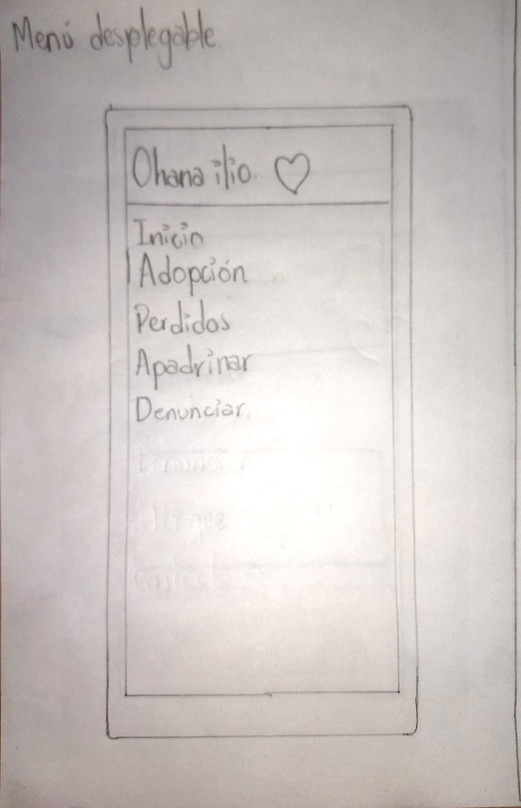 Menú desplegable
Ohana ilio.
Inicio
Adopción
Perdidos
Apadrinar
Denunciar.